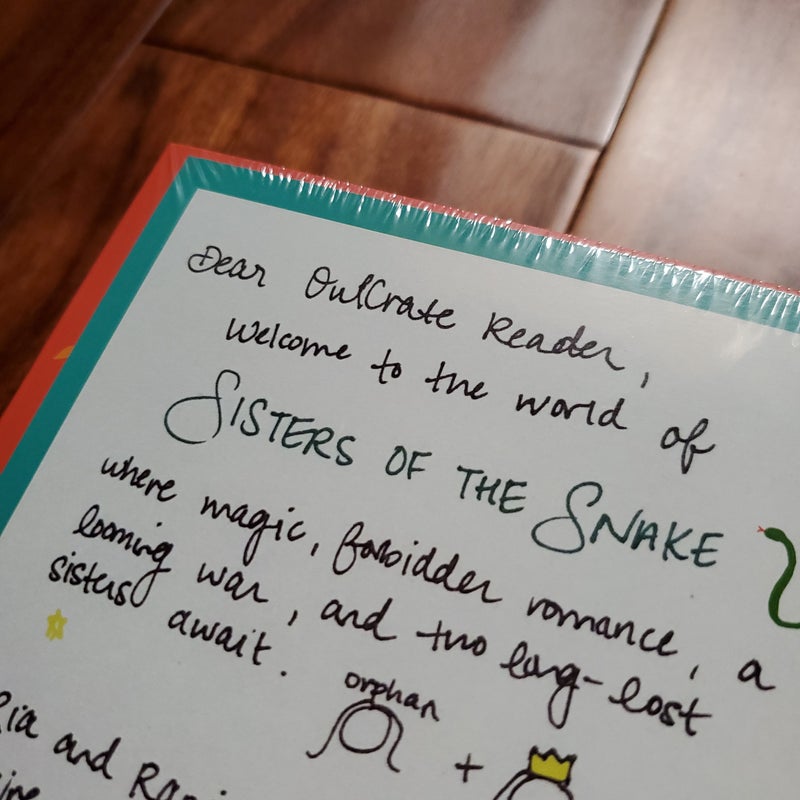 Dear OwlCrate Reader,
Welcome to the world of
SISTERS OF THE SNAKE
where magic, forbidden romance, a
looming war, and two long-lost
sisters await.
orphan
+
and